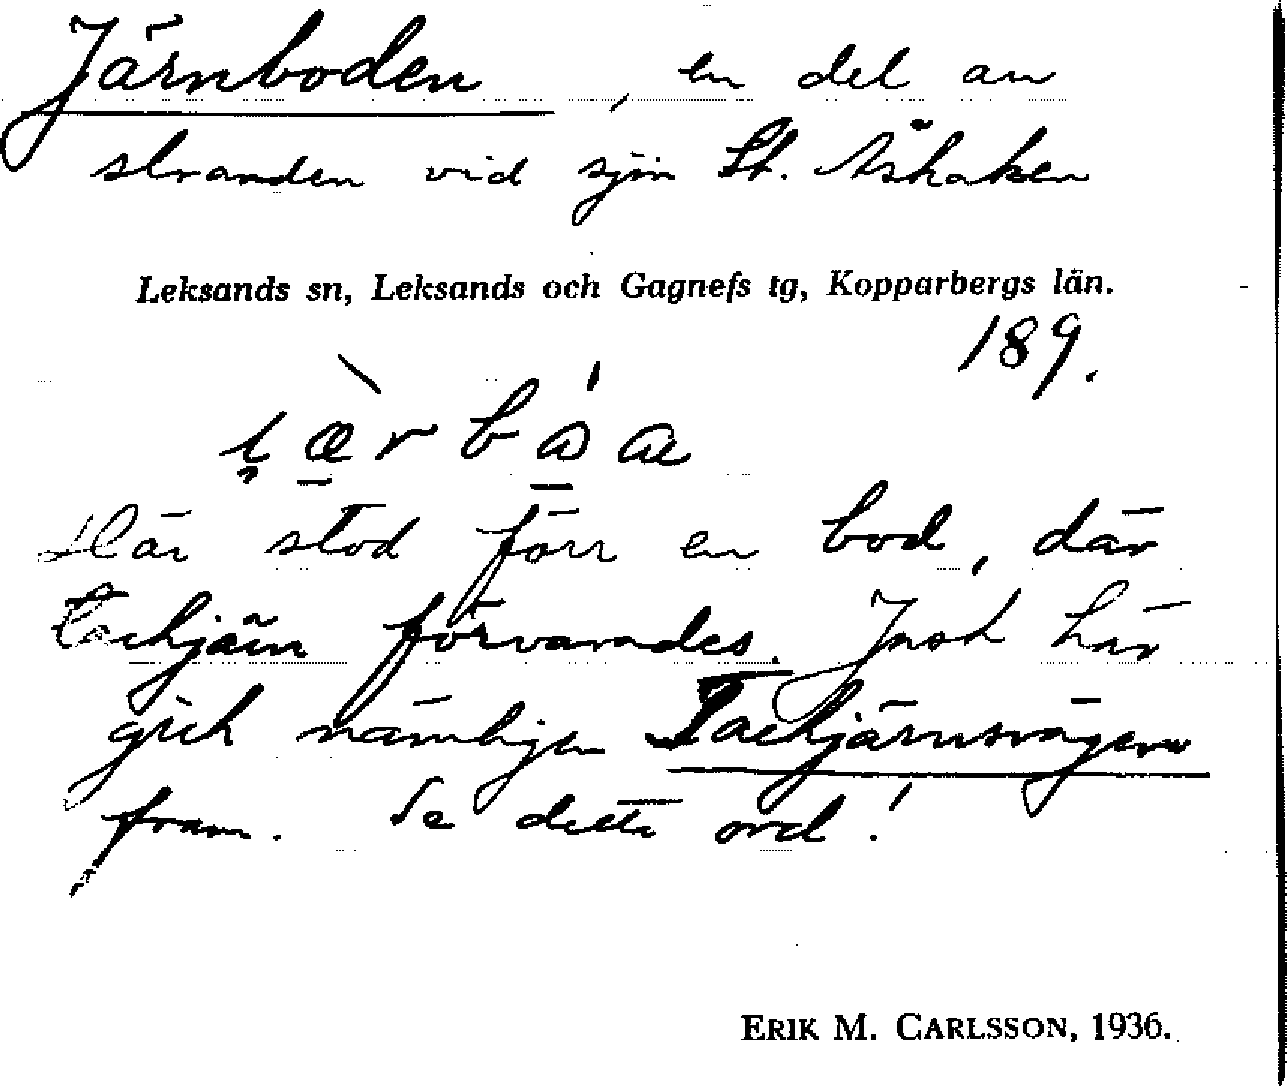 Järnboden, en del av
stranden vid sjön St. Åskaken
Leksands sn, Leksands och Gagnefs tg, Kopparbergs län.
189.
Här stod förr en bod, där
tackjärn förvarades. Just här
gick nämligen Tackjärnsvägen
fram. Se detta ord!
ERIK M. CARLSSON, 1936.